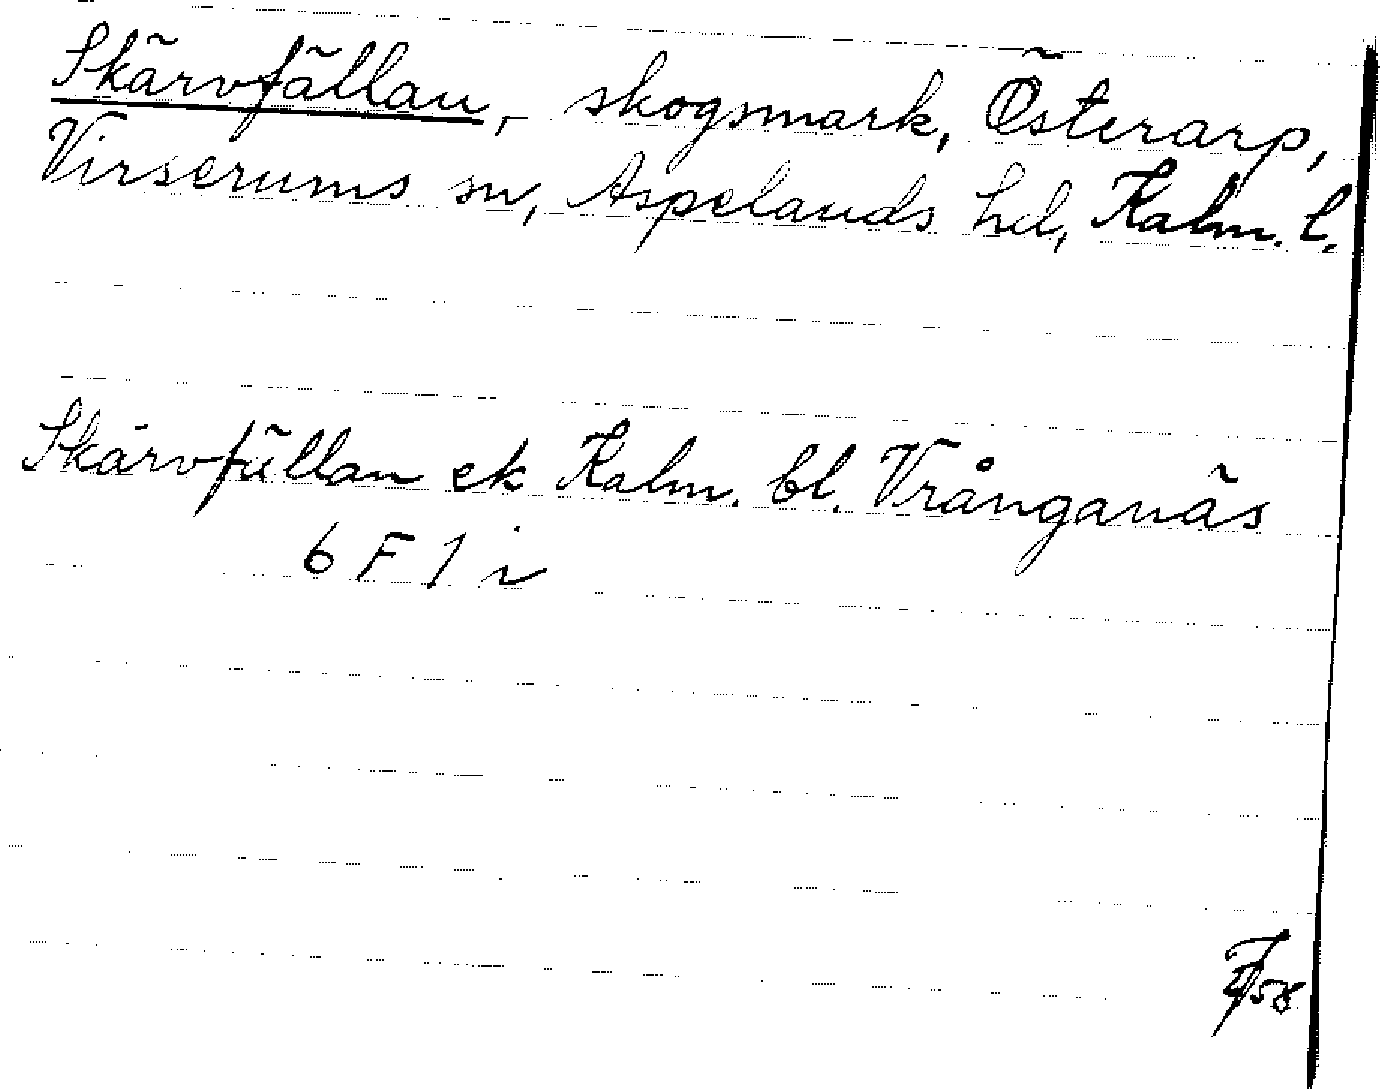 Skärvfällan, skogsmark, Österarp,
Virserums sn, Aspelands hd, Kalm. l.
Skärvfällan ek Kalm. bl. Vrånganäs
6 F 1 i